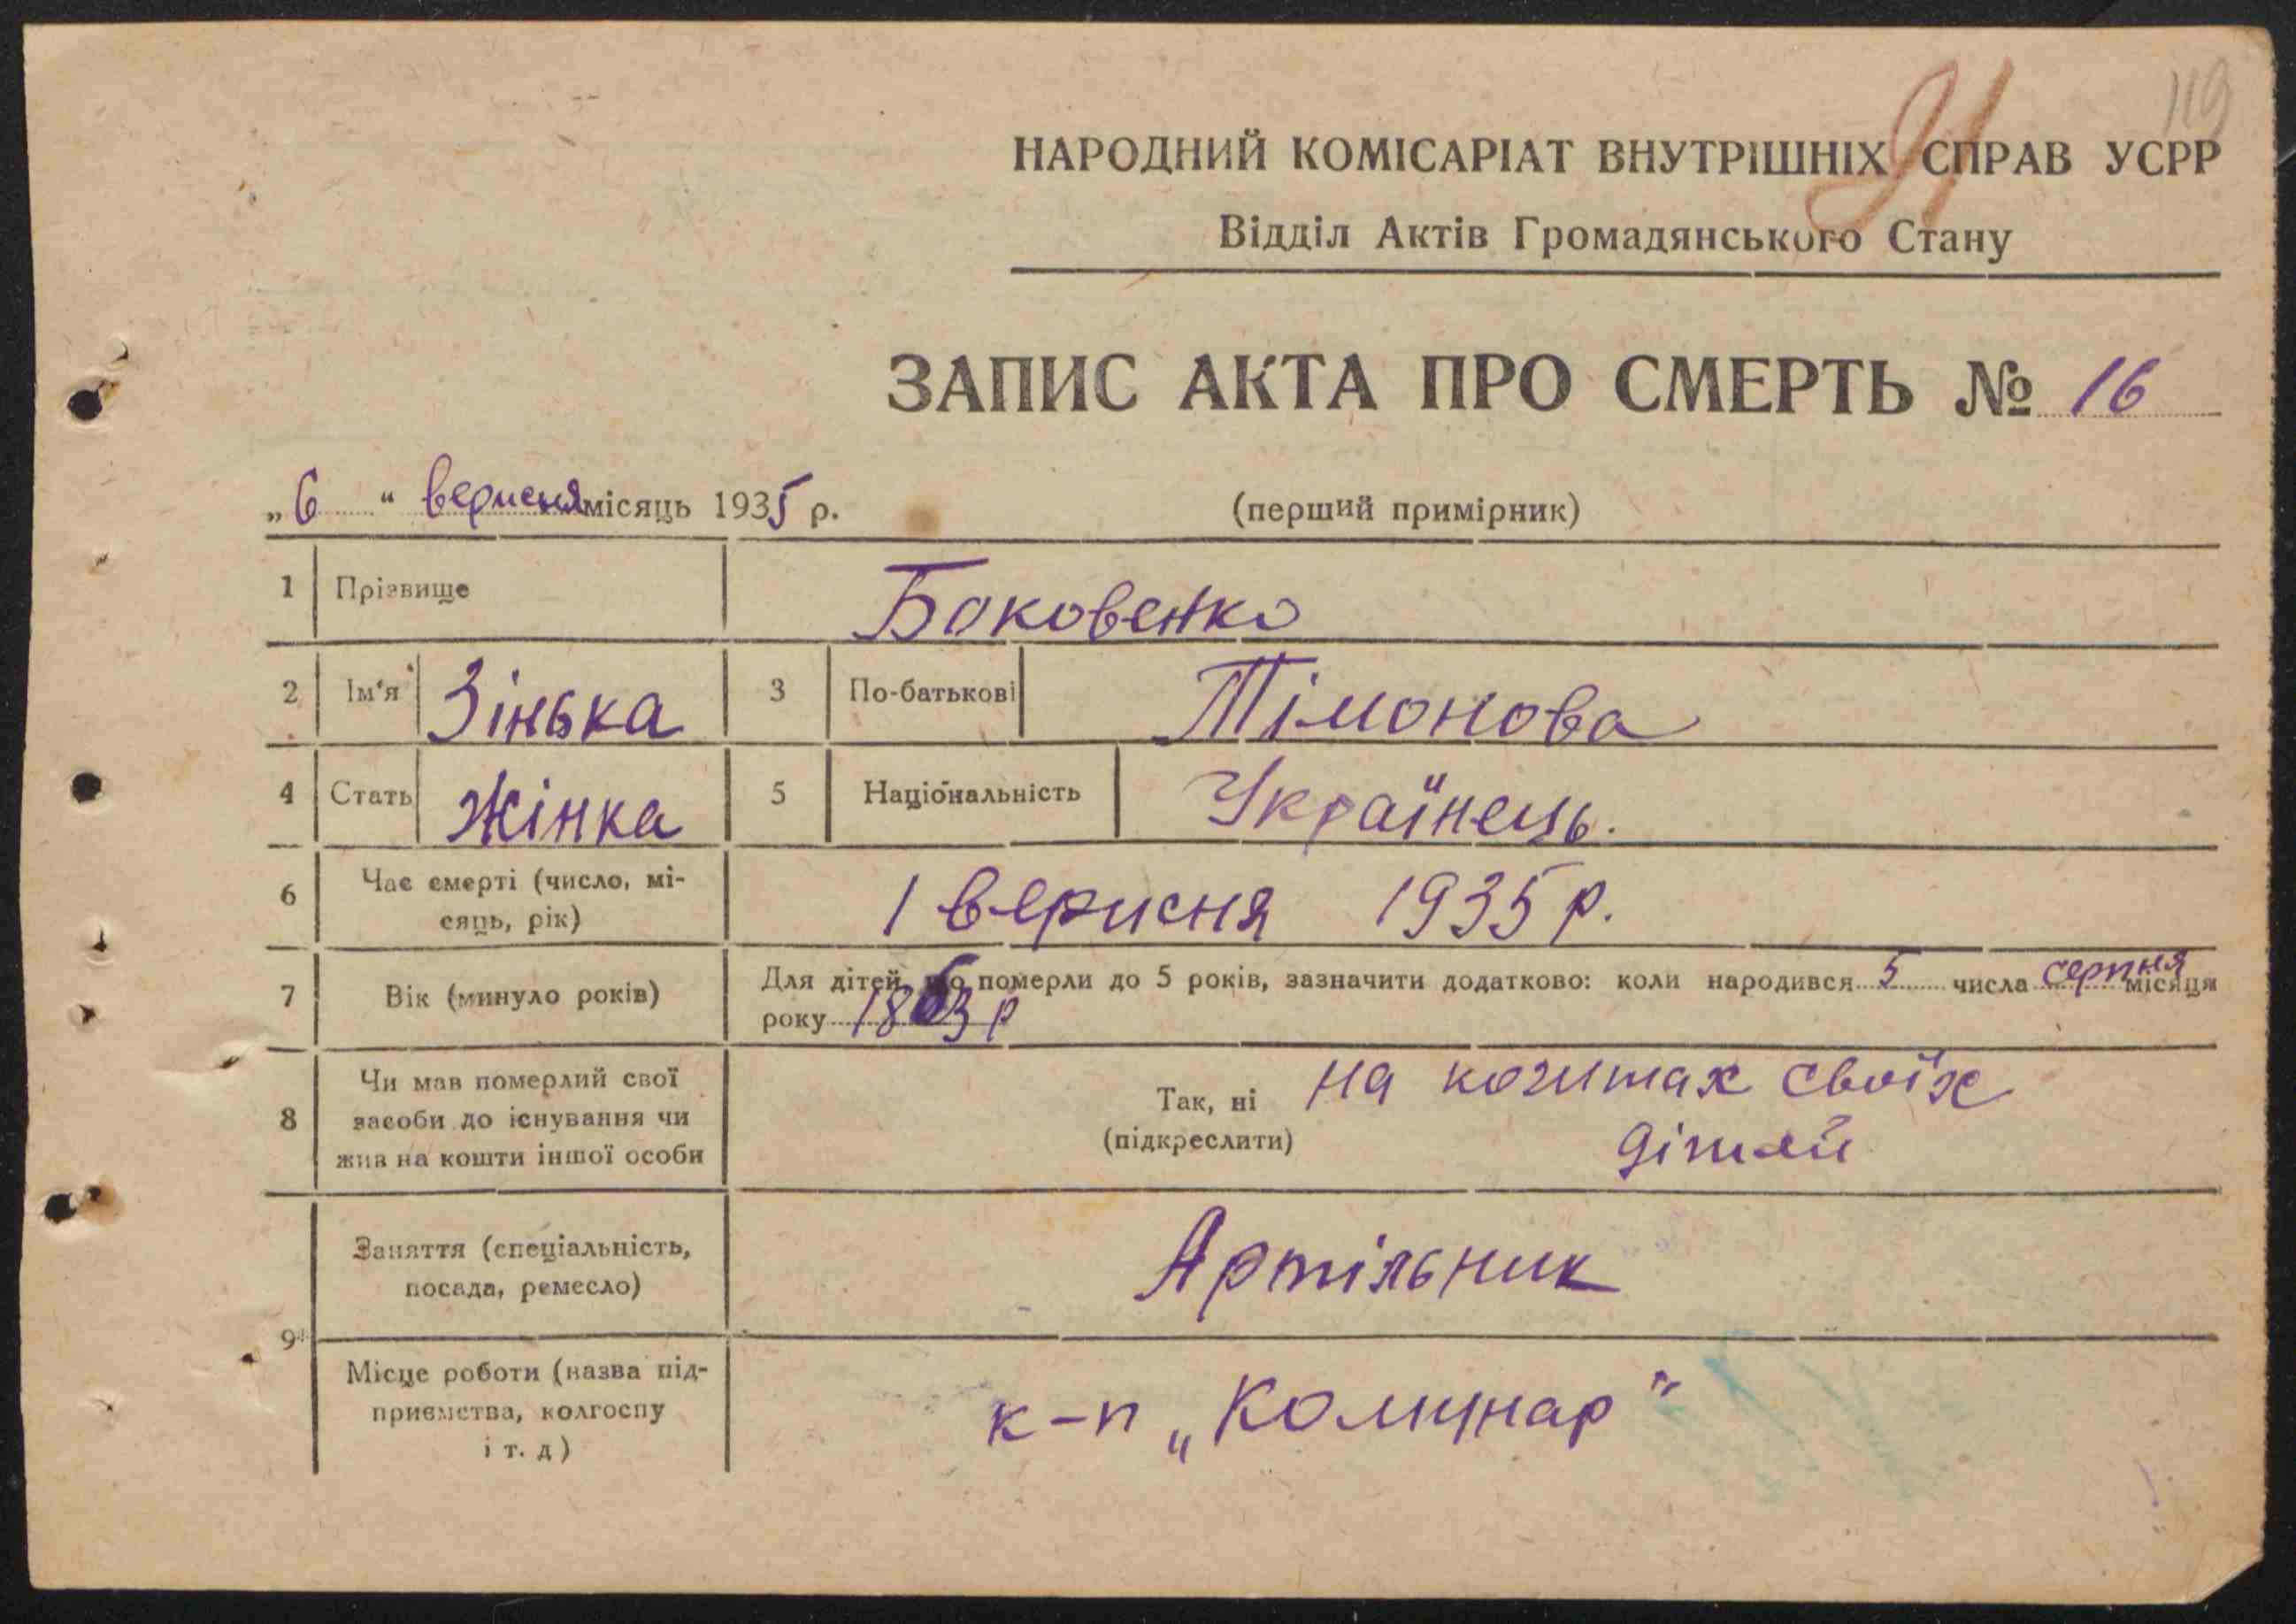 119
И
НАРОДНИЙ КОМІСАРІАТ ВНУТРІШНІХ СПРАВ УСРР
Відділ Актів Громадянського Стану
ЗАПИС АКТА ПРО СМЕРТЬ № 16
„6" вересня місяць 1935 р. (перший примірник)
1 Прізвище Боковенко
2 Ім'я Зінька 3 По-батькові Тімонова
4 Стать Жінка 5 Національність Українець.
6 Час смерті (число, мі-
сяць, рік) 1 вересня 1935 р.
7 Вік (минуло років) Для дітей, що померли до 5 років, зазначити додатково: коли народився 5 числа серпня місяця
року р
8 Чи мав померлий свої
засоби до існування чи
жив на кошти іншої особи
Так, ні
(підкреслити)
на коштах своїх
дітей
9 Заняття (спеціальність,
посада, ремесло) Артільник
Місце роботи (назва під-
приємства, колгоспу
і т. д) к-п „Комунар"